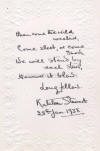 Then come the wild
weather,
Come sleet, or come
snow,
We will stand by
each other,
However it blow.
Longfellow.
25th Jan. 1932.